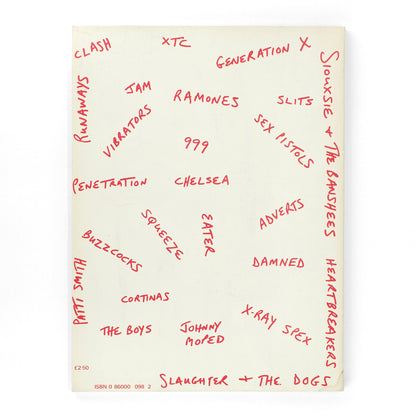 CLASH
XTC
GENERATION X
SIOUXSIE + THE BANSHEES
HEARTBREAKERS
RUNAWAYS
JAM
VIBRATORS
RAMONES
SLITS
SEX PISTOLS
999
PENETRATION
CHELSEA
ADVERTS
SQUEEZE
EATER
BUZZCOCKS
DAMNED
PATTI SMITH
CORTINAS
X-RAY SPEX
THE BOYS
JOHNNY
MOPED
£2·50
SLAUGHTER + THE DOGS
ISBN 0 86000 098 2